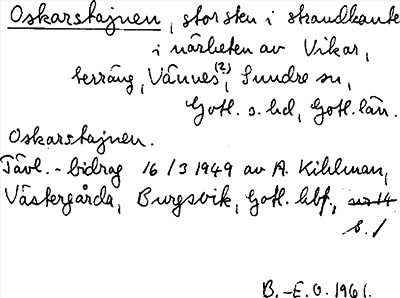 Oskarstajnen, stor sten i strandkanten
i närheten av Vikar,
terräng, Vännes (2), Sundre sn,
Gotl. s. hd, Gotl. län.
Oskarstajnen.
Tävl.-bidrag 16/3 1949 av A. Kihlman,
Västergårda, Burgsvik, Gotl. hbf,
s. 1
B.-E. O. 1961.